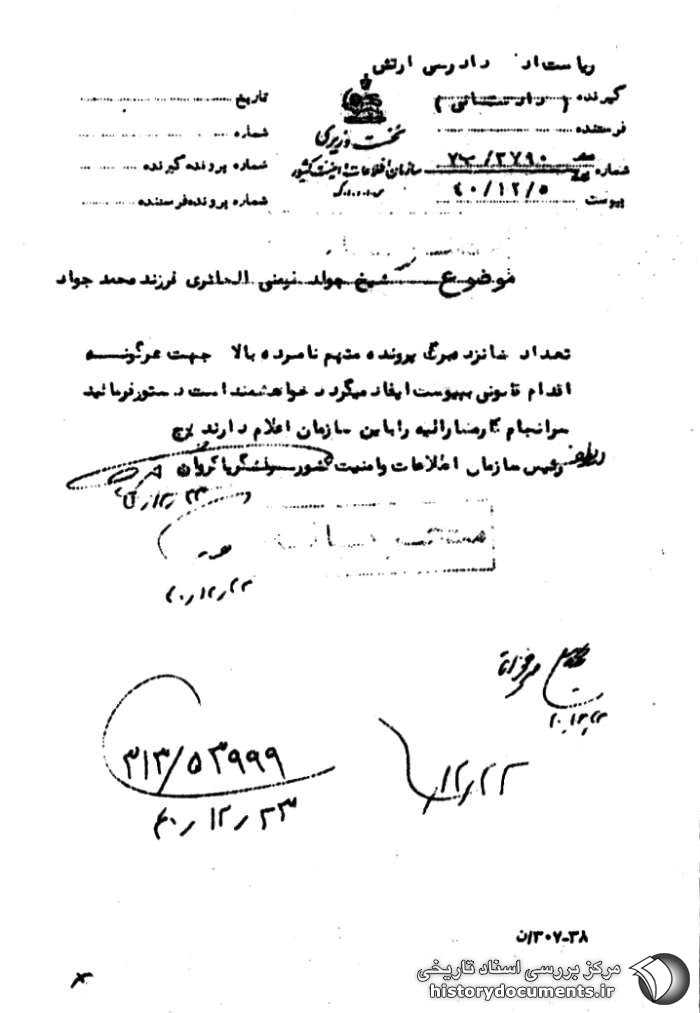 ریاست اد دادرسی ارتش
گیرنده ( دادستانی )
فرستنده
شماره ۳۷۹۰/
پیوست ۴۰/۱۲/۵
نخست وزیری
سازمان اطلاعات و امنیت کشور
س.ا.و.ا.ک
تاریخ
شماره
شماره پرونده گیرنده
شماره پرونده فرستنده
موضوع شیخ جواد فیضی الحائری فرزند محمد جواد
تعداد شانزده برگ پرونده متهم نامبرده بالا جهت هرگونه
اقدام قانونی بپیوست ایفاد میگردد خواهشمند است دستور فرمائید
سرانجام کار مشارالیه را باین سازمان اعلام دارند
رئیس سازمان اطلاعات و امنیت کشور سرلشگر پاکروان
۴۰/۱۲/۲۳
۳۱۳/۵۳۹۹۹
۴۰/۱۲/۲۳
۱۲/۲۲
۳۸-۳۰۷/ن
مرکز بررسی اسناد تاریخی
historydocuments.ir